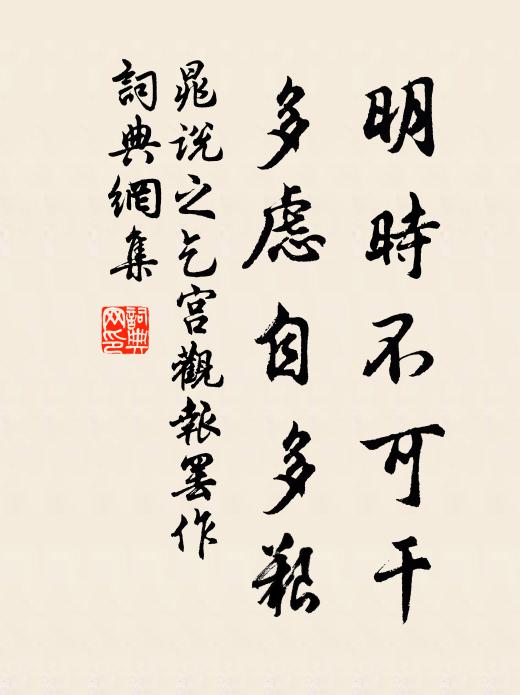 明時不可干
多慮自多艱
晁說之乞宮觀報罷作
詞典網集
詞典
网印